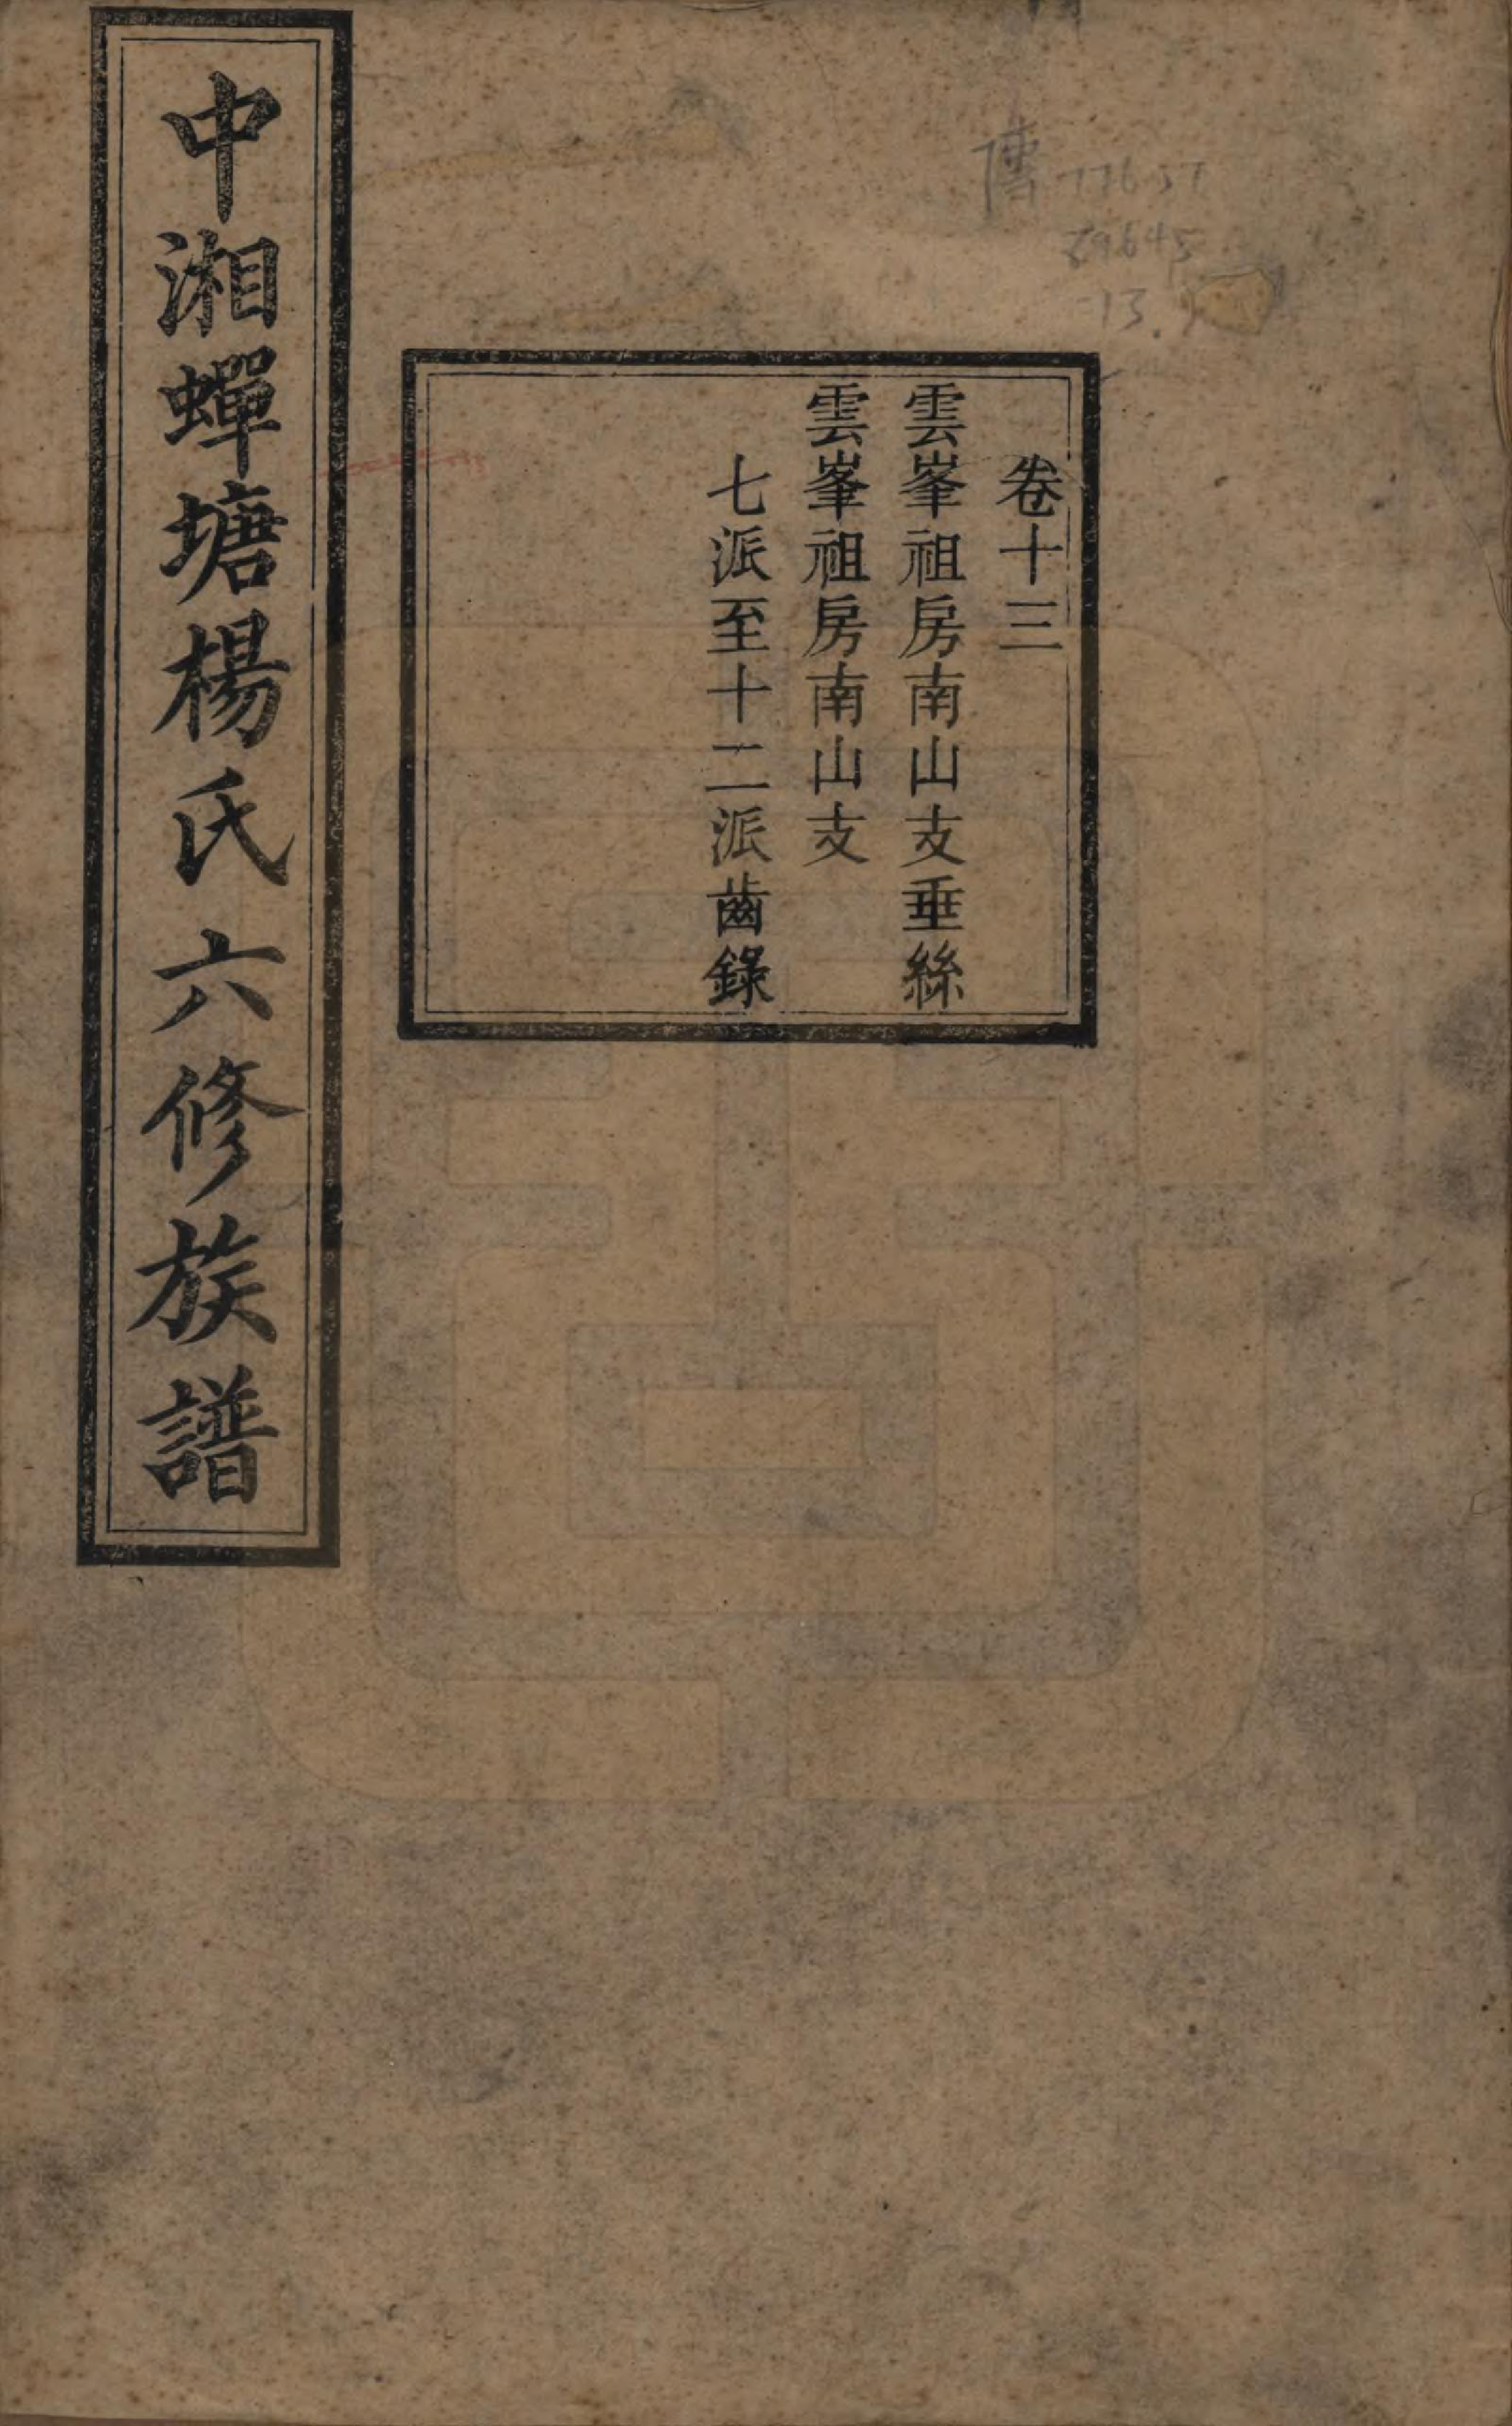 中湘蟬塘楊氏六修族譜
卷十三
雲峯祖房南山支垂絲
雲峯祖房南山支
七派至十二派齒錄